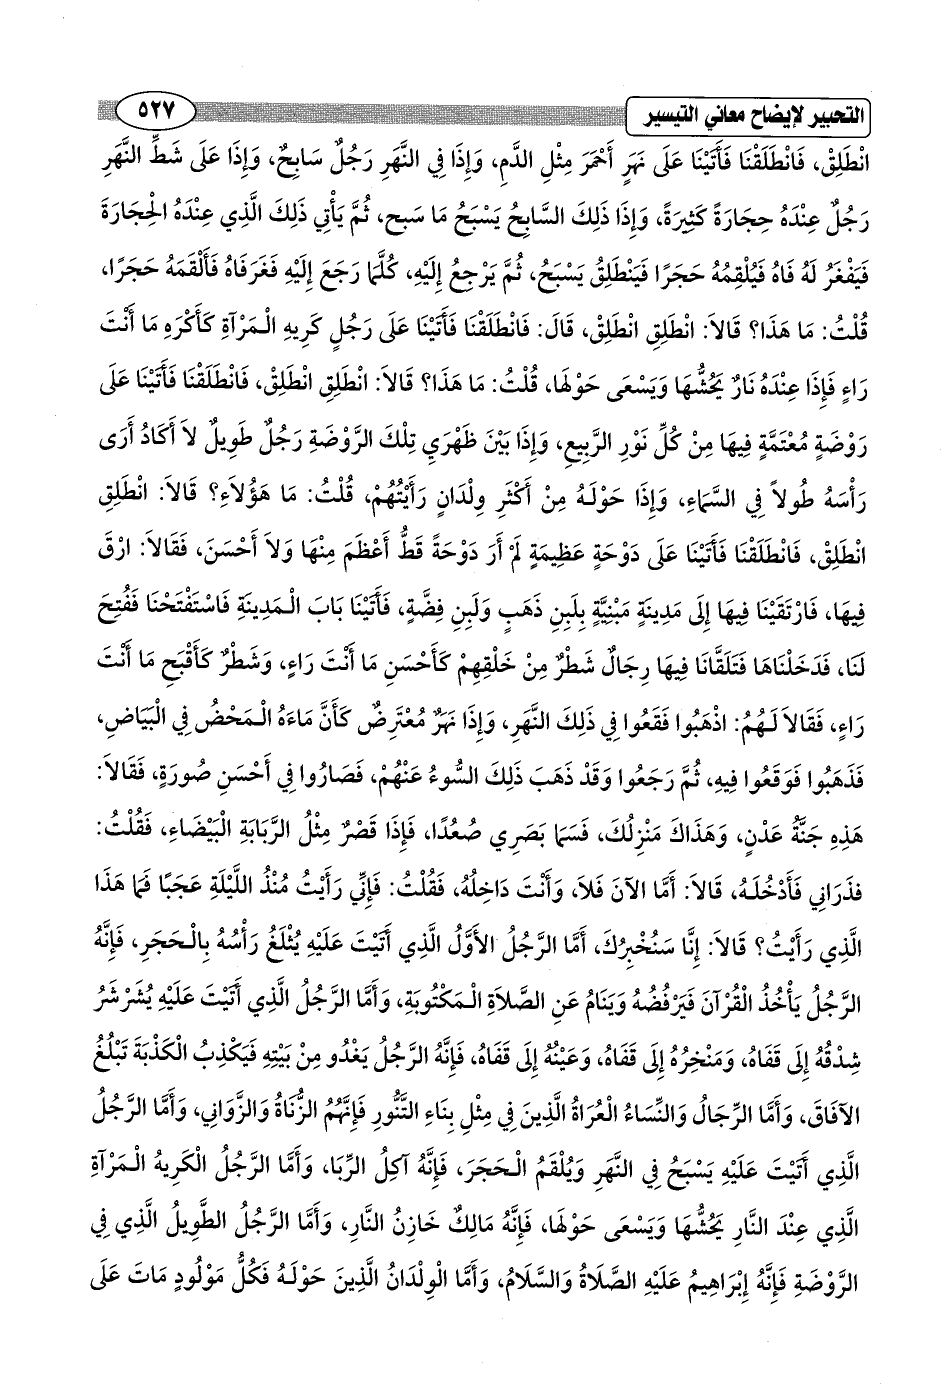 التحبير لإيضاح معاني التيسير
٥٢٧
انْطَلِقْ، فَانْطَلَقْنَا فَأَتَيْنَا عَلَى نَهَرٍ أَحْمَرَ مِثْلِ الدَّمِ، وَإِذَا فِي النَّهَرِ رَجُلٌ سَابِحٌ، وَإِذَا عَلَى شَطِّ النَّهَرِ
رَجُلٌ عِنْدَهُ حِجَارَةً كَثِيرَةً، وَإِذَا ذَلِكَ السَّابِحُ يَسْبَحُ مَا سَبح، ثُمَّ يَأْتِي ذَلِكَ الَّذِي عِنْدَهُ الْحِجَارَةَ
فَيَفْغَرُ لَهُ فَاهُ فَيُلْقِمُهُ حَجَرًا فَيَنْطَلِقُ يَسْبَحُ، ثُمَّ يَرْجِعُ إِلَيْهِ، كُلَّمَا رَجَعَ إِلَيْهِ فَغَرَ فَاهُ فَأَلْقَمَهُ حَجَرًا،
قُلْتُ: مَا هَذَا؟ قَالاَ: انْطَلِقِ انْطَلِقْ، قَالَ: فَانْطَلَقْنَا فَأَتَيْنَا عَلَى رَجُلٍ كَرِيهِ الْمَرْآةِ كَأَكْرَهِ مَا أَنْتَ
رَاءٍ فَإِذَا عِنْدَهُ نَارٌ يَحُشُّهَا وَيَسْعَى حَوْلَهَا، قُلْتُ: مَا هَذَا؟ قَالاَ: انْطَلِقِ انْطَلِقْ، فَانْطَلَقْنَا فَأَتَيْنَا عَلَى
رَوْضَةٍ مُعْتَمَّةٍ فِيهَا مِنْ كُلِّ نَوْرِ الرَّبِيعِ، وَإِذَا بَيْنَ ظَهْرَيِ تِلْكَ الرَّوْضَةِ رَجُلٌ طَوِيلٌ لاَ أَكَادُ أَرَى
رَأْسَهُ طُولاً فِي السَّمَاءِ، وَإِذَا حَوْلَهُ مِنْ أَكْثَرِ وِلْدَانٍ رَأَيْتُهُمْ، قُلْتُ: مَا هَؤُلاَءِ؟ قَالاَ: انْطَلِقِ
انْطَلِقْ، فَانْطَلَقْنَا فَأَتَيْنَا عَلَى دَوْحَةٍ عَظِيمَةٍ لَمْ أَرَ دَوْحَةً قَطُّ أَعْظَمَ مِنْهَا وَلاَ أَحْسَنَ، فَقَالاَ: ارْقَ
فِيهَا، فَارْتَقَيْنَا فِيهَا إِلَى مَدِينَةٍ مَبْنِيَّةٍ بِلَبِنِ ذَهَبٍ وَلَبِنِ فِضَّةٍ، فَأَتَيْنَا بَابَ الْمَدِينَةِ فَاسْتَفْتَحْنَا فَفُتِحَ
لَنَا، فَدَخَلْنَاهَا فَتَلَقَّانَا فِيهَا رِجَالٌ شَطْرٌ مِنْ خَلْقِهِمْ كَأَحْسَنِ مَا أَنْتَ رَاءٍ، وَشَطْرٌ كَأَقْبَحِ مَا أَنْتَ
رَاءٍ، فَقَالاَ لَهُمُ: اذْهَبُوا فَقَعُوا فِي ذَلِكَ النَّهَرِ، وَإِذَا نَهَرٌ مُعْتَرِضٌ كَأَنَّ مَاءَهُ الْمَحْضُ فِي الْبَيَاضِ،
فَذَهَبُوا فَوَقَعُوا فِيهِ، ثُمَّ رَجَعُوا وَقَدْ ذَهَبَ ذَلِكَ السُّوءُ عَنْهُمْ، فَصَارُوا فِي أَحْسَنِ صُورَةٍ، فَقَالاَ:
هَذِهِ جَنَّةُ عَدْنٍ، وَهَذَاكَ مَنْزِلُكَ، فَسَمَا بَصَرِي صُعُدًا، فَإِذَا قَصْرٌ مِثْلُ الرَّبَابَةِ الْبَيْضَاءِ، فَقُلْتُ:
فذَرَانِي فَأَدْخُلَهُ، قَالاَ: أَمَّا الآنَ فَلاَ، وَأَنْتَ دَاخِلُهُ، فَقُلْتُ: فَإِنِّي رَأَيْتُ مُنْذُ اللَّيْلَةِ عَجَبًا فَمَا هَذَا
الَّذِي رَأَيْتُ؟ قَالاَ: إِنَّا سَنُخْبِرُكَ، أَمَّا الرَّجُلُ الأَوَّلُ الَّذِي أَتَيْتَ عَلَيْهِ يُثْلَغُ رَأْسُهُ بِالْحَجَرِ، فَإِنَّهُ
الرَّجُلُ يَأْخُذُ الْقُرْآنَ فَيَرْفُضُهُ وَيَنَامُ عَنِ الصَّلاَةِ الْمَكْتُوبَةِ، وَأَمَّا الرَّجُلُ الَّذِي أَتَيْتَ عَلَيْهِ يُشَرْشَرُ
شِدْقُهُ إِلَى قَفَاهُ، وَمَنْخِرُهُ إِلَى قَفَاهُ، وَعَيْنُهُ إِلَى قَفَاهُ، فَإِنَّهُ الرَّجُلُ يَغْدُو مِنْ بَيْتِهِ فَيَكْذِبُ الْكَذْبَةَ تَبْلُغُ
الآفَاقَ، وَأَمَّا الرِّجَالُ وَالنِّسَاءُ الْعُرَاةُ الَّذِينَ فِي مِثْلِ بِنَاءِ التَّنُّورِ فَإِنَّهُمُ الزُّنَاةُ وَالزَّوَانِي، وَأَمَّا الرَّجُلُ
الَّذِي أَتَيْتَ عَلَيْهِ يَسْبَحُ فِي النَّهَرِ وَيُلْقَمُ الْحَجَرَ، فَإِنَّهُ آكِلُ الرِّبَا، وَأَمَّا الرَّجُلُ الْكَرِيهُ الْمَرْآةِ
الَّذِي عِنْدَ النَّارِ يَحُشُّهَا وَيَسْعَى حَوْلَهَا، فَإِنَّهُ مَالِكٌ خَازِنُ النَّارِ، وَأَمَّا الرَّجُلُ الطَّوِيلُ الَّذِي فِي
الرَّوْضَةِ فَإِنَّهُ إِبْرَاهِيمُ عَلَيْهِ الصَّلَاةُ وَالسَّلَامُ، وَأَمَّا الْوِلْدَانُ الَّذِينَ حَوْلَهُ فَكُلُّ مَوْلُودٍ مَاتَ عَلَى